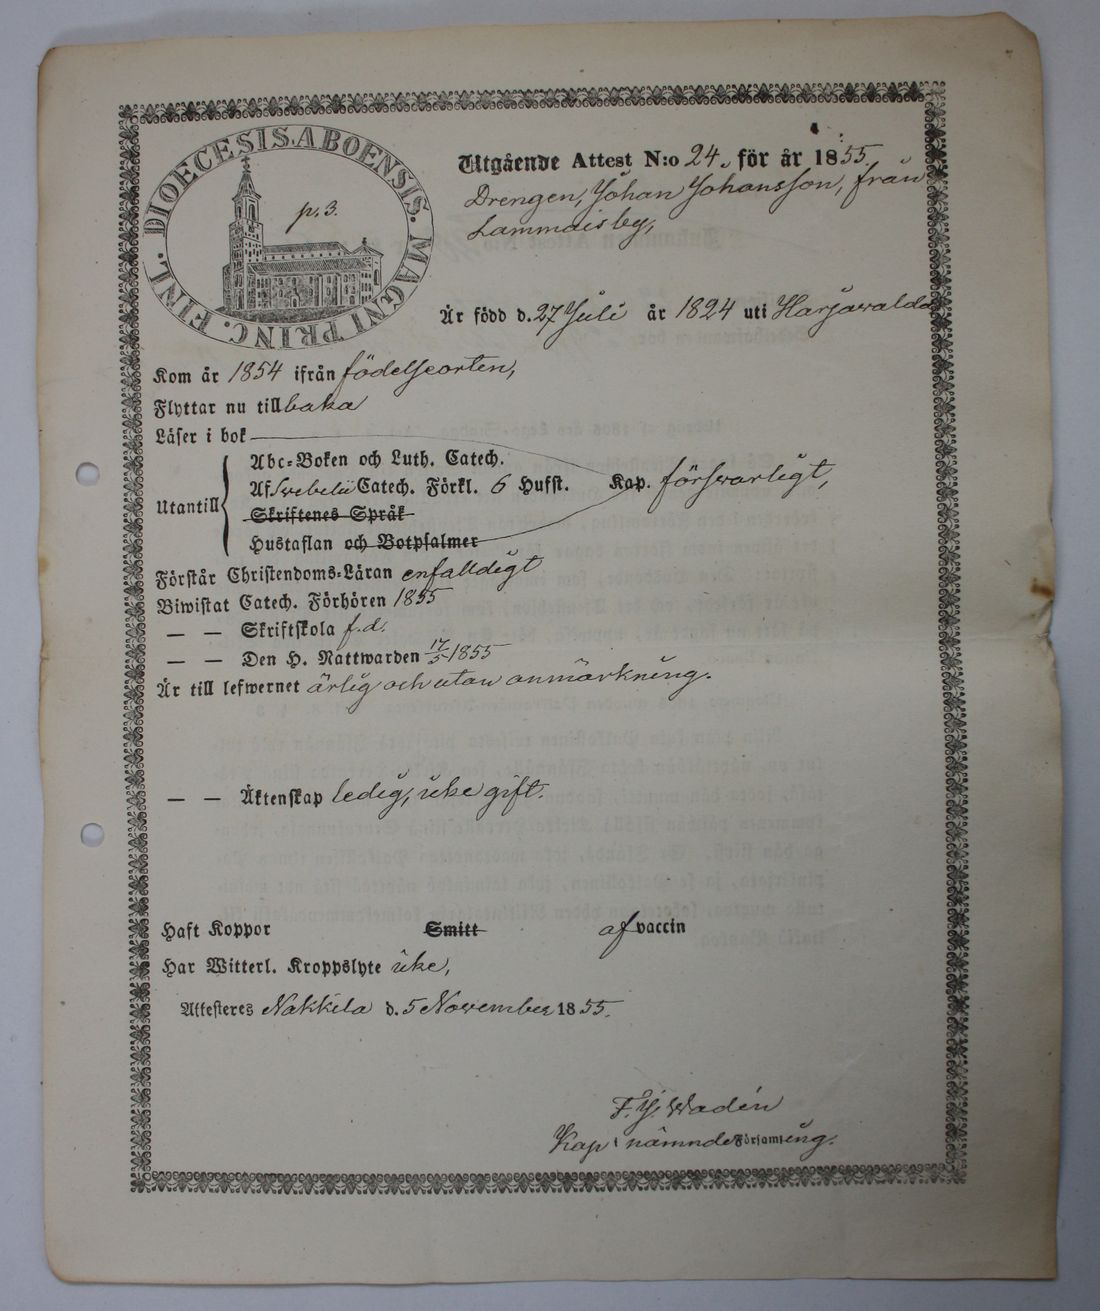 DIOECESIS. ABOENSIS. MAGNI PRINC. FINL.
p. 3.
Utgående Attest N:o 24. för år 1855.
Drengen, Johan Johansson, från
Lammaisby,
Är född d. 27 Juli år 1824 uti Harjawalda
Kom år 1854 ifrån födelseorten,
Flyttar nu tillbaka
Läser i bok
Abc-Boken och Luth. Catech.
Utantill
Af Swebelii Catech. Förkl. 6 Hufst. Kap. förswarligt,
Skriftenes Språk
Hustaflan och Botpsalmer
Förstår Christendoms-Läran enfalldigt
Biwistat Catech. Förhören 1855
— — Skriftskola f.d.
— — Den H. Nattwarden 17/5 1855
Är till lefwernet ärlig och utan anmärkning.
— — Äktenskap ledig, icke gift.
Haft Koppor Smitt af vaccin
Har Witterl. Kroppslyte icke,
Attesteres Nakkila d. 5 November 1855.
F. J. Wadén
Kap i nämnde Församling.